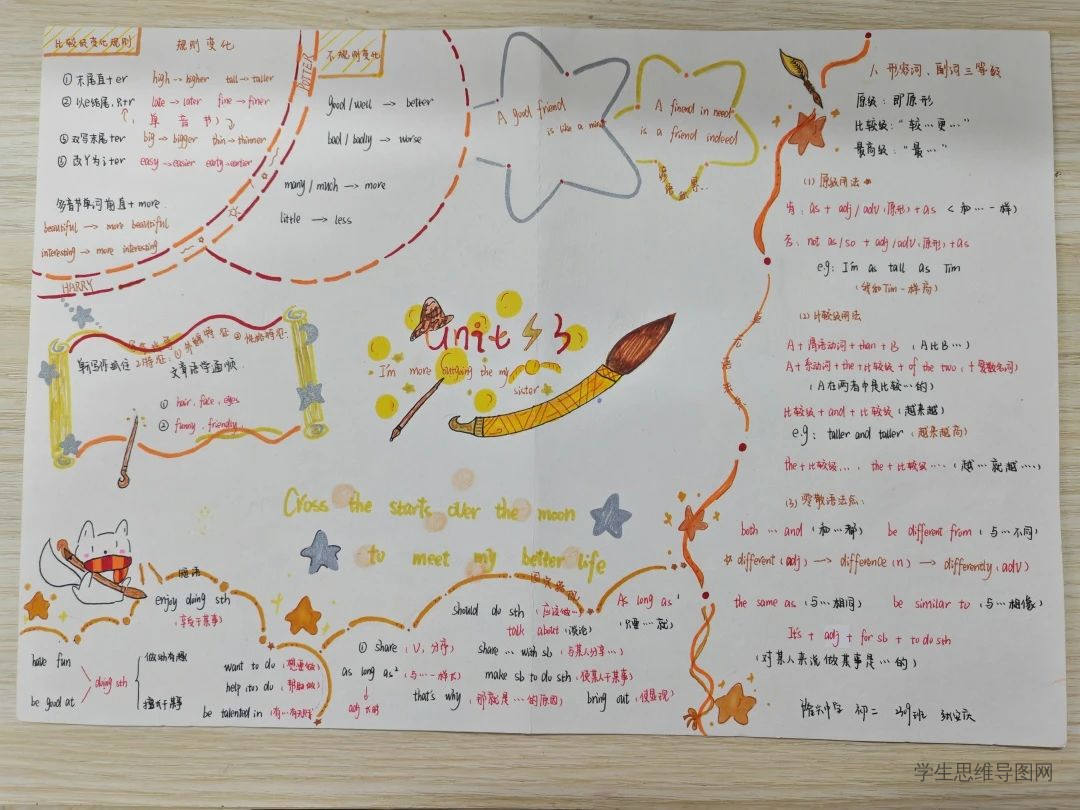 比较级变化规则
规则变化
① 末尾直+er high→higher tall→taller
② 以e结尾，只+r late→later fine→finer
（单音节）
③ 双写末尾+er big→bigger thin→thinner
④ 改Y为i+er easy→easier early→earlier
多音节单词前直+more
beautiful → more beautiful
interesting → more interesting
HARRY
POTTER
不规则变化
good / well → better
bad / badly → worse
many / much → more
little → less
A good friend
is like a
A friend in need
is a friend indeed
单写作
文章语句通顺
① hair, face, eyes
② funny, friendly
Unit 3
I'm more
sister
Cross the starts over the moon
to meet my better life
短语
enjoy doing sth
（享受于某事）
have fun
be good at
doing sth
做动有趣
擅长于某事
want to do（想要做）
help (to) do（帮助做）
be talented in
should do sth（应该做…）
talk about（谈论）
As long as¹
（只要…就）
① share（V，分享） share … with sb（与某人分享…）
as long as²（与…一样长） make sb to do sth（使某人干某事）
adj
that's why（那就是…的原因） bring out（使显现）
八 形容词、副词三等级
原级：即原形
比较级：“较…更…”
最高级：“最…”
(1) 原级用法
肯：as + adj / adv（原形）+ as （和…一样）
否：not as / so + adj / adv（原形）+ as
e.g: I'm as tall as Tim
（我和Tim一样高）
(2) 比较级用法
A + 谓语动词 + than + B （A比B…）
A + 系动词 + the + 比较级 + of the two,（+ 复数名词）
（A在两者中是比较…的）
比较级 + and + 比较级（越来越）
e.g: taller and taller（越来越高）
the + 比较级…，the + 比较级…（越…就越…）
(3) 零散语法点：
both … and（和…都） be different from（与…不同）
☆ different (adj) → difference (n) → differently (adv)
the same as（与…相同） be similar to（与…相像）
It's + adj + for sb + to do sth
（对某人来说做某事是…的）
初二
学生思维导图网